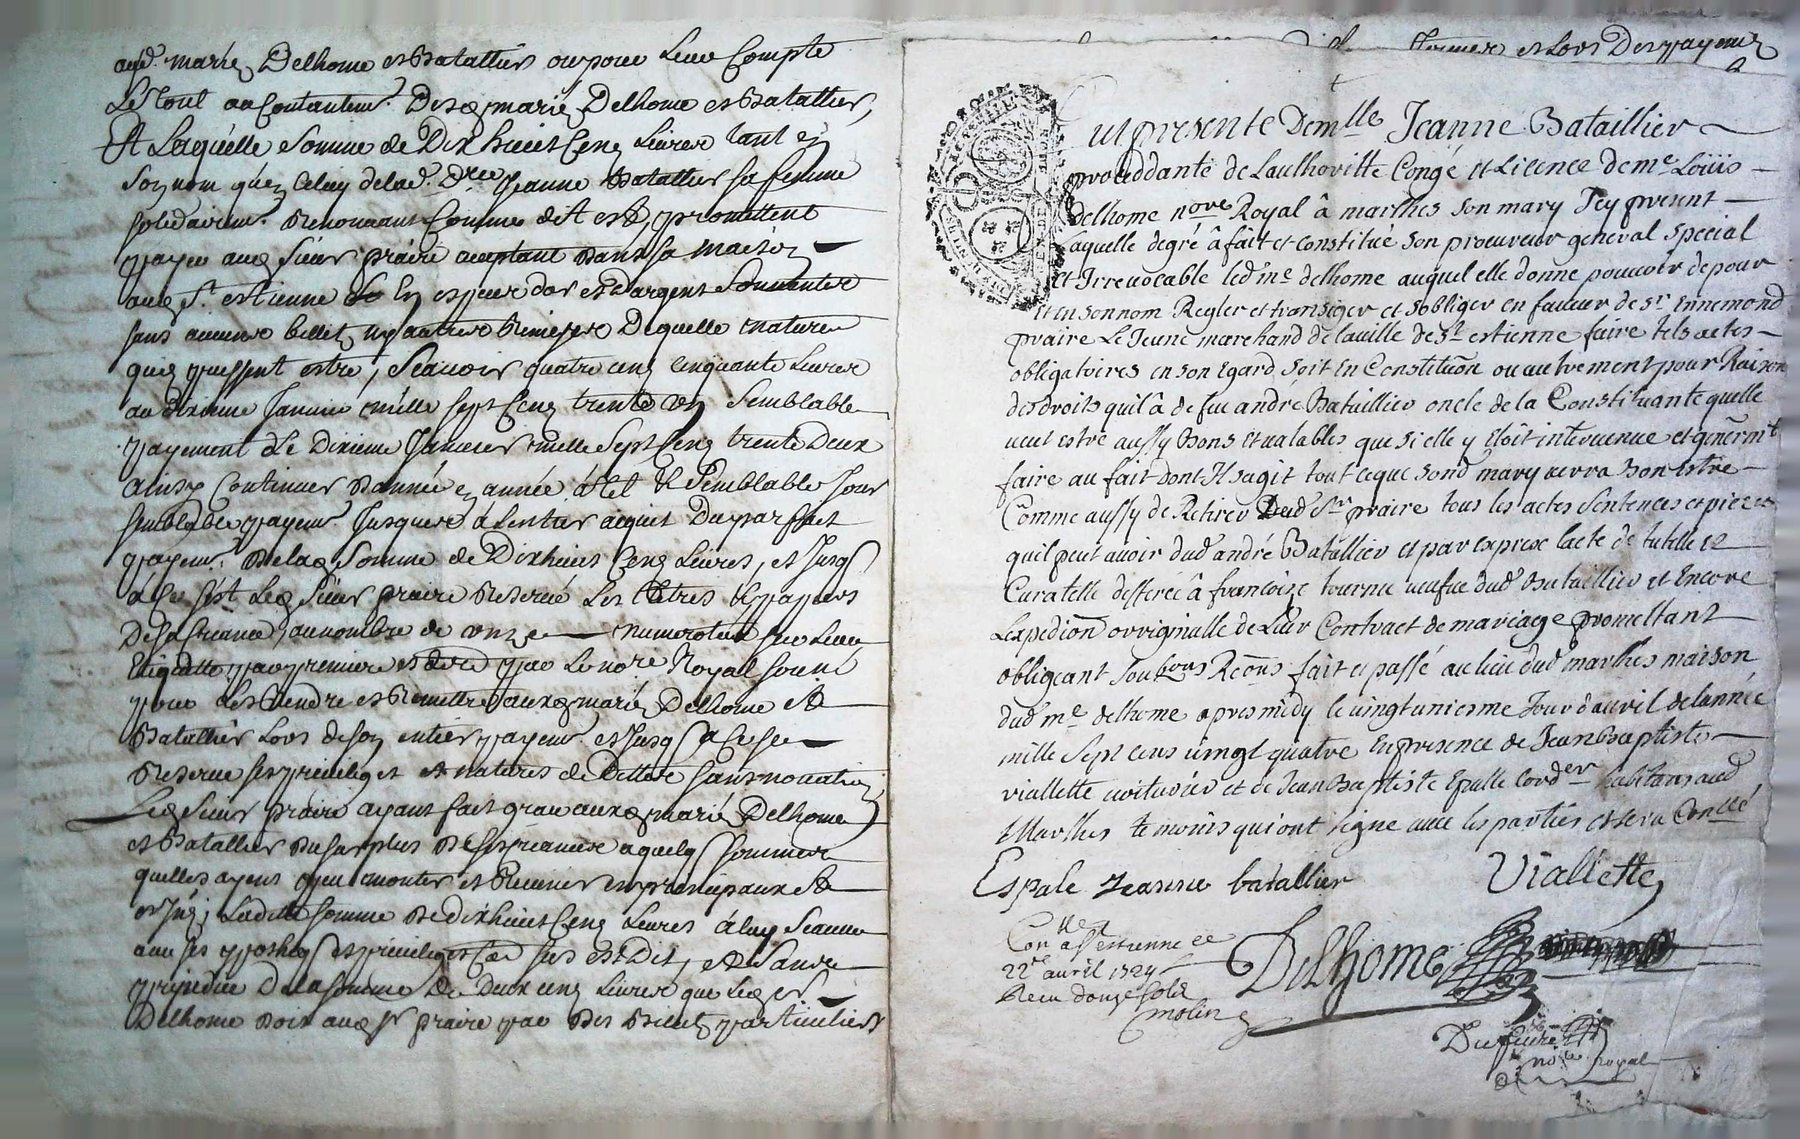 auxd. mariés Delhome et Batallier ou pour Leur Compte
Le tout au Contantemt. Desd. mariés Delhome et Batallier,
Et Laquelle Somme de Dix huict Cens Livres tant en
Son nom qu'en Celuy de lad. Dlle Jeanne Batallier sa femme
solidairemt. Renonceant Comme dit est, promettent
payer aud. Sieur praire acceptant Dans sa maison
aud. St. estienne En espece d'or et d'argent Sonnantes
sans aucuns billets ny autres Dequelle nature
quils puissent estre, Scauoir quatre cens Cinquante Livres
au dixieme Januier mille sept Cens trente un Semblable
payement Le Dixieme Januier mille Sept Cens trente Deux
ainsy Continuer D'année en année à tel & Semblable Jour
semblable payemt. Jusques à Lentier acquit Du parfait
payemt. De lad. Somme de Dix huict Cens Livres, et Jusq
à Ce s'est Led. Sieur praire Reserué Les tiltres & papiers
De sa Creance, au nombre de onze numerotés sur Leur
Etiquette par premiere et dre par Le nore. Royal soubné
pour Les Rendre et Remettre auxd. mariés Delhome &
Batallier Lors de son entier payemt. et Jusq a Ce se
Reserue ses priuileges & natures de Dettes sans nouation
Led. Sieur praire ayant fait grace auxd. mariés Delhome
et Batallier Du surplus De ses Creances a quelq sommes
quelles ayent peu monter et Reuenir en principaux &
Ladite somme De dix huict Cens Livres à luy
auec ses ypotheq et priuileges Co. sus est Dit, & Sans
prejudice De la somme De Deux cens Livres que Led. Sr
Delhome Doit aud. Sr praire par Des Billets particuliers
termes et Lors Des payemts
Fut presente Demlle Jeanne Bataillier
procéddante de Laulhoritte Congé et Licence de me Loüis
delhome nore Royal â marlhes Son mary Jcy present
Laquelle degré â fait et constitué Son procureur general special
et Jrreuocable led me delhome auquel elle donne pouuoir de pour
et en Son nom Regler et transiger et Sobliger en faueur de Sr Ennemond
praire Le Jeune marchand de la uille de St estienne faire tels actes
obligatoires en Son Egard Soit En Constituon ou autrement pour Raison
des droits quil â de feu andré Bataillier oncle de la Constituante quelle
ueut estre aussy Bons et ualables que Si elle y Etoit interuenue et generallmt
faire au fait dont Jl Sagit tout ceque Sond mary uerra Bon Estre
Comme aussy de Retirer Dud Sr praire tous les actes Sentences et pieces
quil peut auoir dud andré Batallier et par exprex lacte de tutelle et
Curatelle defferée â francoize tournu ueufue dud Bataillier et Encore
Lexpedion orriginalle de Leur Contract de mariage promettant
obligeant Soubons Reons fait et passé au lieu dud marlhes maison
dud me delhome apres midy le uingtuniesme Jour d'auril de lannée
mille Sept cens uingt quatre En presence de Jean Baptiste
viallette et de Jean Baptiste Epalle Cordier habitans aud
Marlhes temoins qui ont Signe auec les parties et sera Conllé
Espale Jeanne batallier Viallette
Conlle a St estienne ce
22e auril 1724
Recu douze sols
molin
Delhome
Dufaure
nore royal